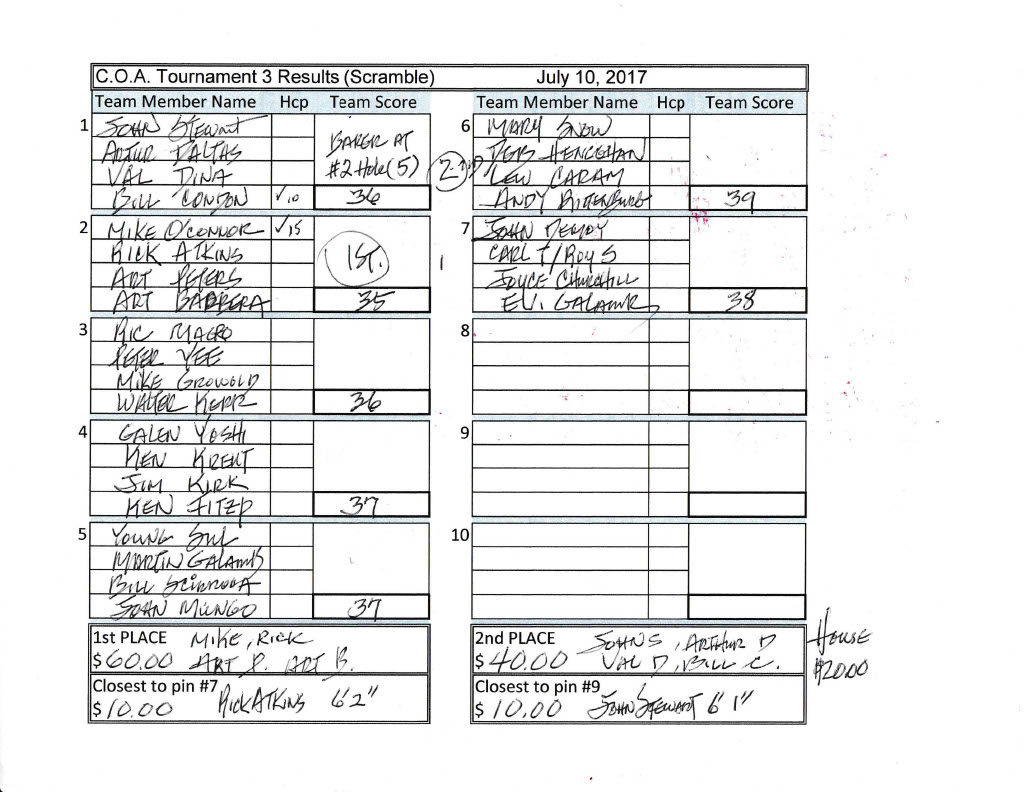 C.O.A. Tournament 3 Results (Scramble) July 10, 2017
Team Member Name Hcp Team Score
1 JOHN STEWART
ARTUR DALTAS
VAL DINA
BILL CONDON ✓10
AT
#2 Hole (5)
36
2ND
2 MIKE O'CONNOR ✓15
RICK ATKINS
ART PETERS
ART BARRERA
1ST.
35
3 RIC MAGRO
PETER YEE
MIKE GROWOLD
WALTER KERR
36
4 GALEN YOSHI
KEN KREHT
JIM KIRK
KEN FITZP
37
5 YOUNG SUL
MARTIN GALAMB
BILL
JOHN MUNGO
37
Team Member Name Hcp Team Score
6 MARY SNOW
DEB HENCEHAN
LEW CARAM
ANDY RITTENBURG
39
7 JOHN
CARL T/ROY S
JOYCE CHURCHILL
EV. GALAMB
38
8
9
10
1st PLACE MIKE, RICK
$60.00 ART P. ART B.
2nd PLACE JOHN S, ARTHUR D
$40.00 VAL D, BILL C.
HOUSE
$20.00
Closest to pin #7 RICK ATKINS 6'2"
$10.00
Closest to pin #9
$10.00 JOHN STEWART 6'1"